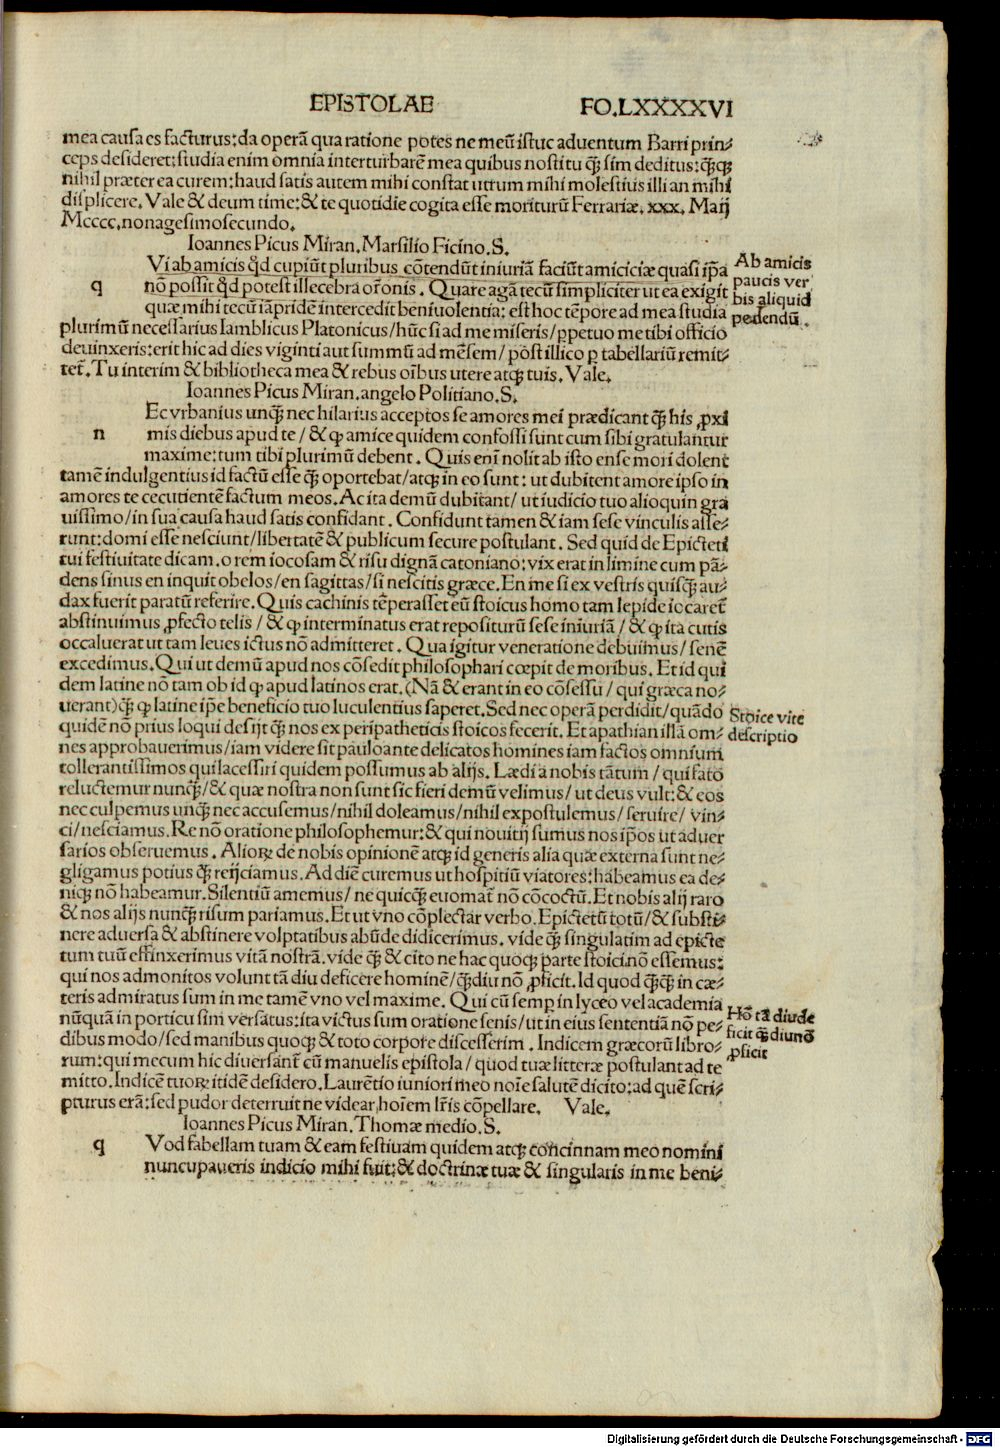 EPISTOLAE FO.LXXXXVI
mea causa es facturus:da operā qua ratione potes ne meū istuc aduentum Barri prin⸗
ceps desideret:studia enim omnia interturbarē mea quibus nosti tu ꝙ̄ sim deditus:ꝙ̄qꝫ
nihil præter ea curem:haud satis autem mihi constat utrum mihi molestius illi an mihi
displicere. Vale & deum time:& te quotidie cogita esse moriturū Ferrariæ. xxx. Maij
Mcccc.nonagesimosecundo.
Ioannes Picus Miran. Marsilio Ficino. S.
q Vi ab amicis qd̄ cupiūt pluribus cōtendūt iniuriā faciūt amiciciæ quasi ip̄a
nō possit qd̄ potest illecebra or̄onis. Quare agā tecū simpliciter ut ea exigit
quæ mihi tecū iā pridē intercedit beniuolentia: est hoc tēpore ad mea studia
plurimū necessarius Iamblicus Platonicus/hūc si ad me miseris/ꝑpetuo me tibi officio
deuinxeris:erit hic ad dies viginti aut summū ad mēsem/post illico ꝑ tabellariū remit⸗
tet̄. Tu interim & bibliotheca mea & rebus oībus utere atqꝫ tuis. Vale.
Ioannes Picus Miran. angelo Politiano. S.
n Ec vrbanius unqꝫ̄ nec hilarius acceptos se amores mei prædicant ꝙ̄ his ꝓxi
mis diebus apud te/& ꝙ amice quidem confossi sunt cum sibi gratulantur
maxime:tum tibi plurimū debent. Quis enī nolit ab isto ense mori dolent
tamē indulgentius id factū esse ꝙ̄ oportebat/atqꝫ in eo sunt: ut dubitent amore ipso in
amores te cecutientē factum meos. Ac ita demū dubitant/ut iudicio tuo alioquin gra
uissimo/in sua causa haud satis confidant. Confidunt tamen & iam sese vinculis asse⸗
runt:domi esse nesciunt/libertatē & publicum secure postulant. Sed quid de Epicteti
tui festiuitate dicam.o rem iocosam & risu dignā catoniano:vix erat in limine cum pā⸗
dens sinus en inquit obelos/en sagittas/si nescitis græce. En me si ex vestris quisqꝫ̄ au⸗
dax fuerit paratū referire. Quis cachinis tēperasset eū stoicus homo tam lepide iocaret̄
abstinuimus ꝓfecto telis/& ꝙ interminatus erat repositurū sese iniuriā/& ꝙ ita cutis
occaluerat ut tam leues ictus nō admitteret. Qua igitur veneratione debuimus/senē
excedimus. Qui ut demū apud nos cōsedit philosophari cœpit de moribus. Et id qui
dem latine nō tam ob id ꝙ apud latinos erat.(Nā & erant in eo cōsessu/qui græca no⸗
uerant)ꝙ̄ ꝙ latine ip̄e beneficio tuo luculentius saperet. Sed nec operā perdidit/quādo
quidē nō prius loqui desijt ꝙ̄ nos ex peripatheticis stoicos fecerit. Et apathian illā om⸗
nes approbauerimus/iam videre sit pauloante delicatos homines iam factos omnium
tollerantissimos qui lacessiri quidem possumus ab alijs. Lædi a nobis tātum/qui fato
reluctemur nunqꝫ̄/& quæ nostra non sunt sic fieri demū velimus/ut deus vult:& eos
nec culpemus unqꝫ̄ nec accusemus/nihil doleamus/nihil expostulemus/seruire/vin⸗
ci/nesciamus. Re nō oratione philosophemur:& qui nouitij sumus nos ip̄os ut aduer
sarios obseruemus. Alioꝝ de nobis opinionē atqꝫ id generis alia quæ externa sunt ne⸗
gligamus potius ꝙ̄ reijciamus. Ad diē curemus ut hospitiū viatores:habeamus ea de⸗
niqꝫ nō habeamur. Silentiū amemus/ne quicqꝫ̄ euomat̄ nō cōcoctū. Et nobis alij raro
& nos alijs nunqꝫ̄ risum pariamus. Et ut vno cōplectar verbo. Epictetū totū/& substi⸗
nere aduersa & abstinere volptatibus abūde didicerimus. vide ꝙ̄ singulatim ad epicte
tum tuū effinxerimus vitā nostrā. vide ꝙ̄ & cito ne hac quoqꝫ parte stoici nō essemus:
qui nos admonitos volunt tā diu deficere hominē/ꝙ̄diu nō ꝓficit. Id quod ꝙ̄qꝫ̄ in cæ⸗
teris admiratus sum in me tamē vno vel maxime. Qui cū semp̄ in lyceo vel academia
nūquā in porticu sim versatus:ita victus sum oratione senis/ut in eius sententiā nō pe⸗
dibus modo/sed manibus quoqꝫ & toto corpore discesserim. Indicem græcorū libro⸗
rum:qui mecum hic diuersant̄ cū manuelis epistola/quod tuæ litteræ postulant ad te
mitto. Indicē tuoꝝ itidē desidero. Laurētio iuniori meo noīe salutē dicito:ad quē scri⸗
pturus erā:sed pudor deterruit ne videar hoīem lr̄is cōpellare. Vale.
Ioannes Picus Miran. Thomæ medio. S.
q Vod fabellam tuam & eam festiuam quidem atqꝫ concinnam meo nomini
nuncupaueris indicio mihi fuit:& doctrinæ tuæ & singularis in me beni⸗
Ab amicis
paucis ver
bis aliquid
petendū.
Stoice vite
descriptio
Hō tā diu de
ficit ꝙ̄ diu nō
ꝓficit
Digitalisierung gefördert durch die Deutsche Forschungsgemeinschaft - DFG